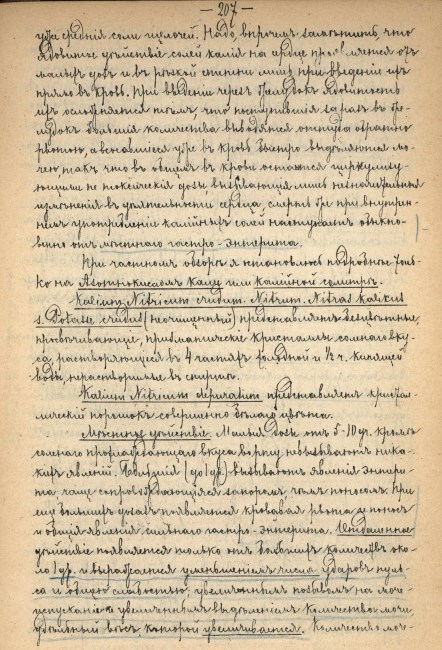 — 207 —
уже среднія соли щелочей. Надо, впрочемъ замѣтить, что
ядовитое дѣйствіе солей калія на сердце проявляется отъ
малыхъ дозъ и въ рѣзкой степени лишь при введеніи ихъ
прямо въ кровь. При введеніи черезъ желудокъ ядовитость
ихъ ослабляется тѣмъ, что поступившія заразъ въ же-
лудокъ большія количества выводятся оттуда обратно
рвотою, а всосавшіеся уже въ кровь быстро выдѣляются мо-
чею, такъ что въ общемъ въ крови остаются циркулиру-
ющими не токсическія дозы, вызывающія лишь незначительныя
измѣненія въ дѣятельности сердца, смерть же при внутрен-
немъ употребленіи калійныхъ солей наступаетъ обыкно-
венно отъ мѣстнаго гастро-энтерита.
При частномъ обзорѣ я остановлюсь подробнѣе толь-
ко на Азотнокисломъ Кали или Калійной селитрѣ.
Kalium Nitricum crudum. Nitrum. Nitras kalicus
s. Potassae crudus (неочищенный) представляетъ безцвѣтные,
просвѣчивающіе, призматическіе кристаллы, солёнаго вку-
са, растворяющіеся въ 4 частяхъ холодной и ½ ч. кипящей
воды, нерастворимые въ спиртѣ.
Kalium Nitricum depuratum представляетъ кристал-
лическій порошокъ совершенно бѣлаго цвѣта.
Мѣстное дѣйствіе. Малыя дозы отъ 5-10 гр. кромѣ
соленаго прохлаждающаго вкуса во рту, не вызываютъ ника-
кихъ явленій. Большія (до 1 др.) вызываютъ явленія энтери-
та, чаще сопровождающагося запоромъ, чѣмъ поносомъ. При
ещё большихъ дозахъ появляется кровавая рвота и поносъ
и общія явленія сильнаго гастро-энтерита. Отдаленное
дѣйствіе появляется только отъ большихъ количествъ око-
ло 1 др. и выражается уменьшеніемъ числа ударовъ пуль-
са и общею слабостью, увеличеннымъ позывомъ на моче-
испусканіе и увеличеннымъ выдѣленіемъ количества мочи,
удѣльный вѣсъ которой увеличивается. Количество моч-